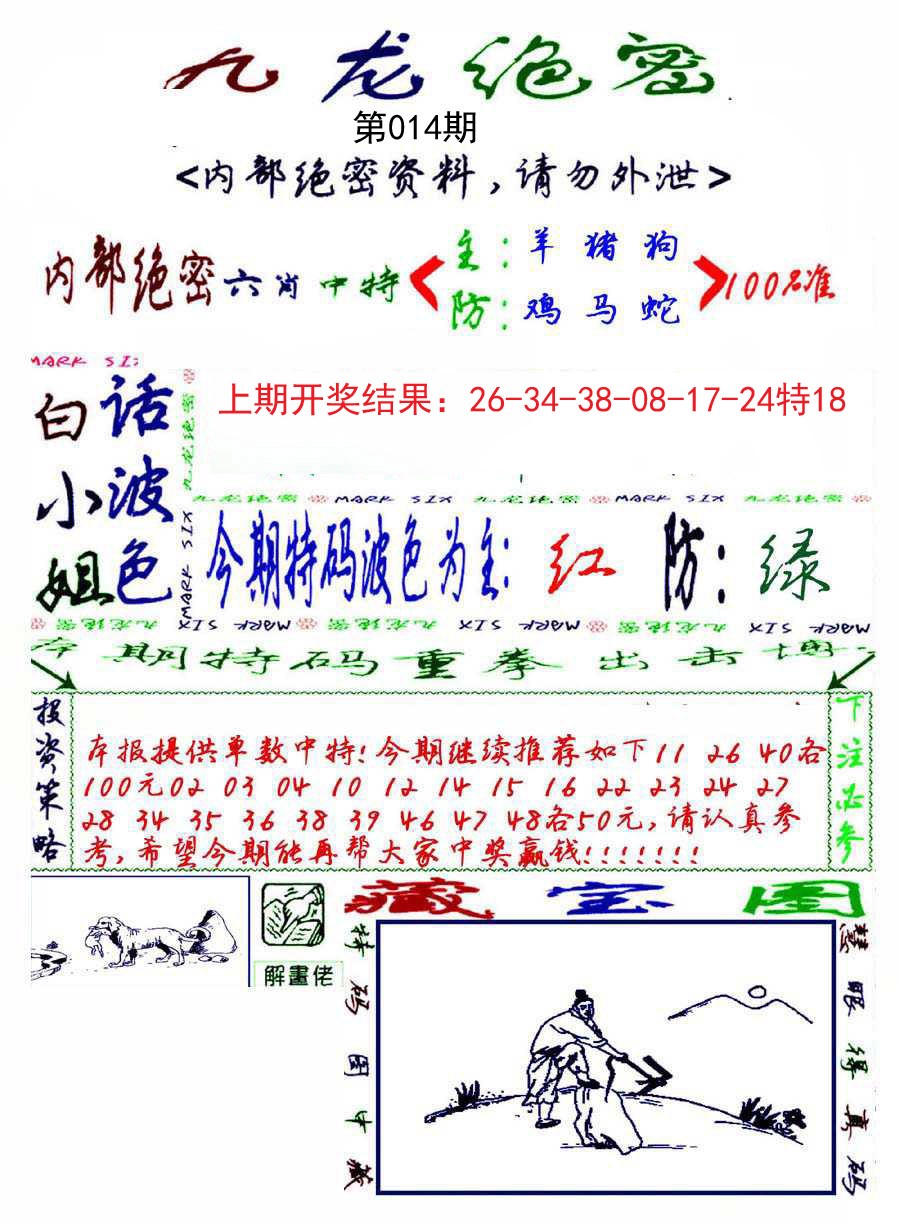 九龙绝密
第014期
<内部绝密资料,请勿外泄>
内部绝密六肖中特
主:羊猪狗
防:鸡马蛇
100%准
MARK SI
白小姐
话波色
九龙绝密
MARK SIX
上期开奖结果：26-34-38-08-17-24特18
九龙绝密 MARK SIX 九龙绝密 MARK SIX 九龙绝密
今期特码波色为主:红 防:绿
九龙绝密 MARK SIX 九龙绝密 MARK SIX 九龙绝密 MARK SIX
本期特码重拳出击
投资策略
本报提供单数中特!今期继续推荐如下11 26 40各
100元02 03 04 10 12 14 15 16 22 23 24 27
28 34 35 36 38 39 46 47 48各50元,请认真参
考,希望今期能再帮大家中奖赢钱!!!!!!!
下注必参
解畫佬
藏宝图
特码图中藏
慧眼得真码